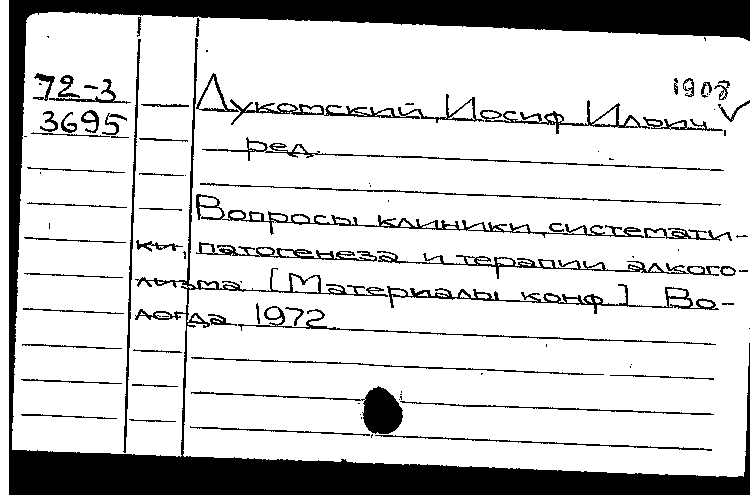 1908
72-3
3695
Лукомский, Иосиф Ильич,
ред.
Вопросы клиники, системати-
ки, патогенеза и терапии алкого-
лизма. [Материалы конф.] Во-
логда, 1972.